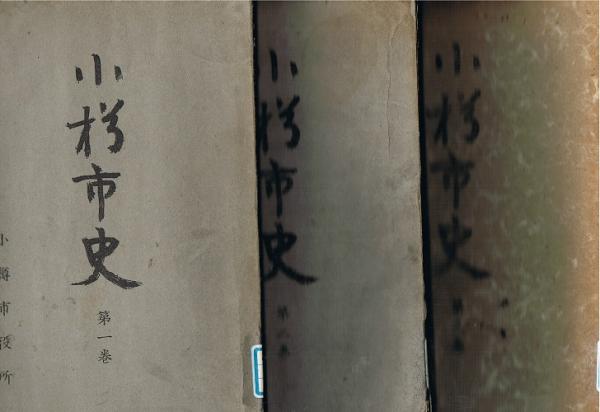 小樽市史
第一巻
小樽市役所
小樽市史
第二巻
小樽市史